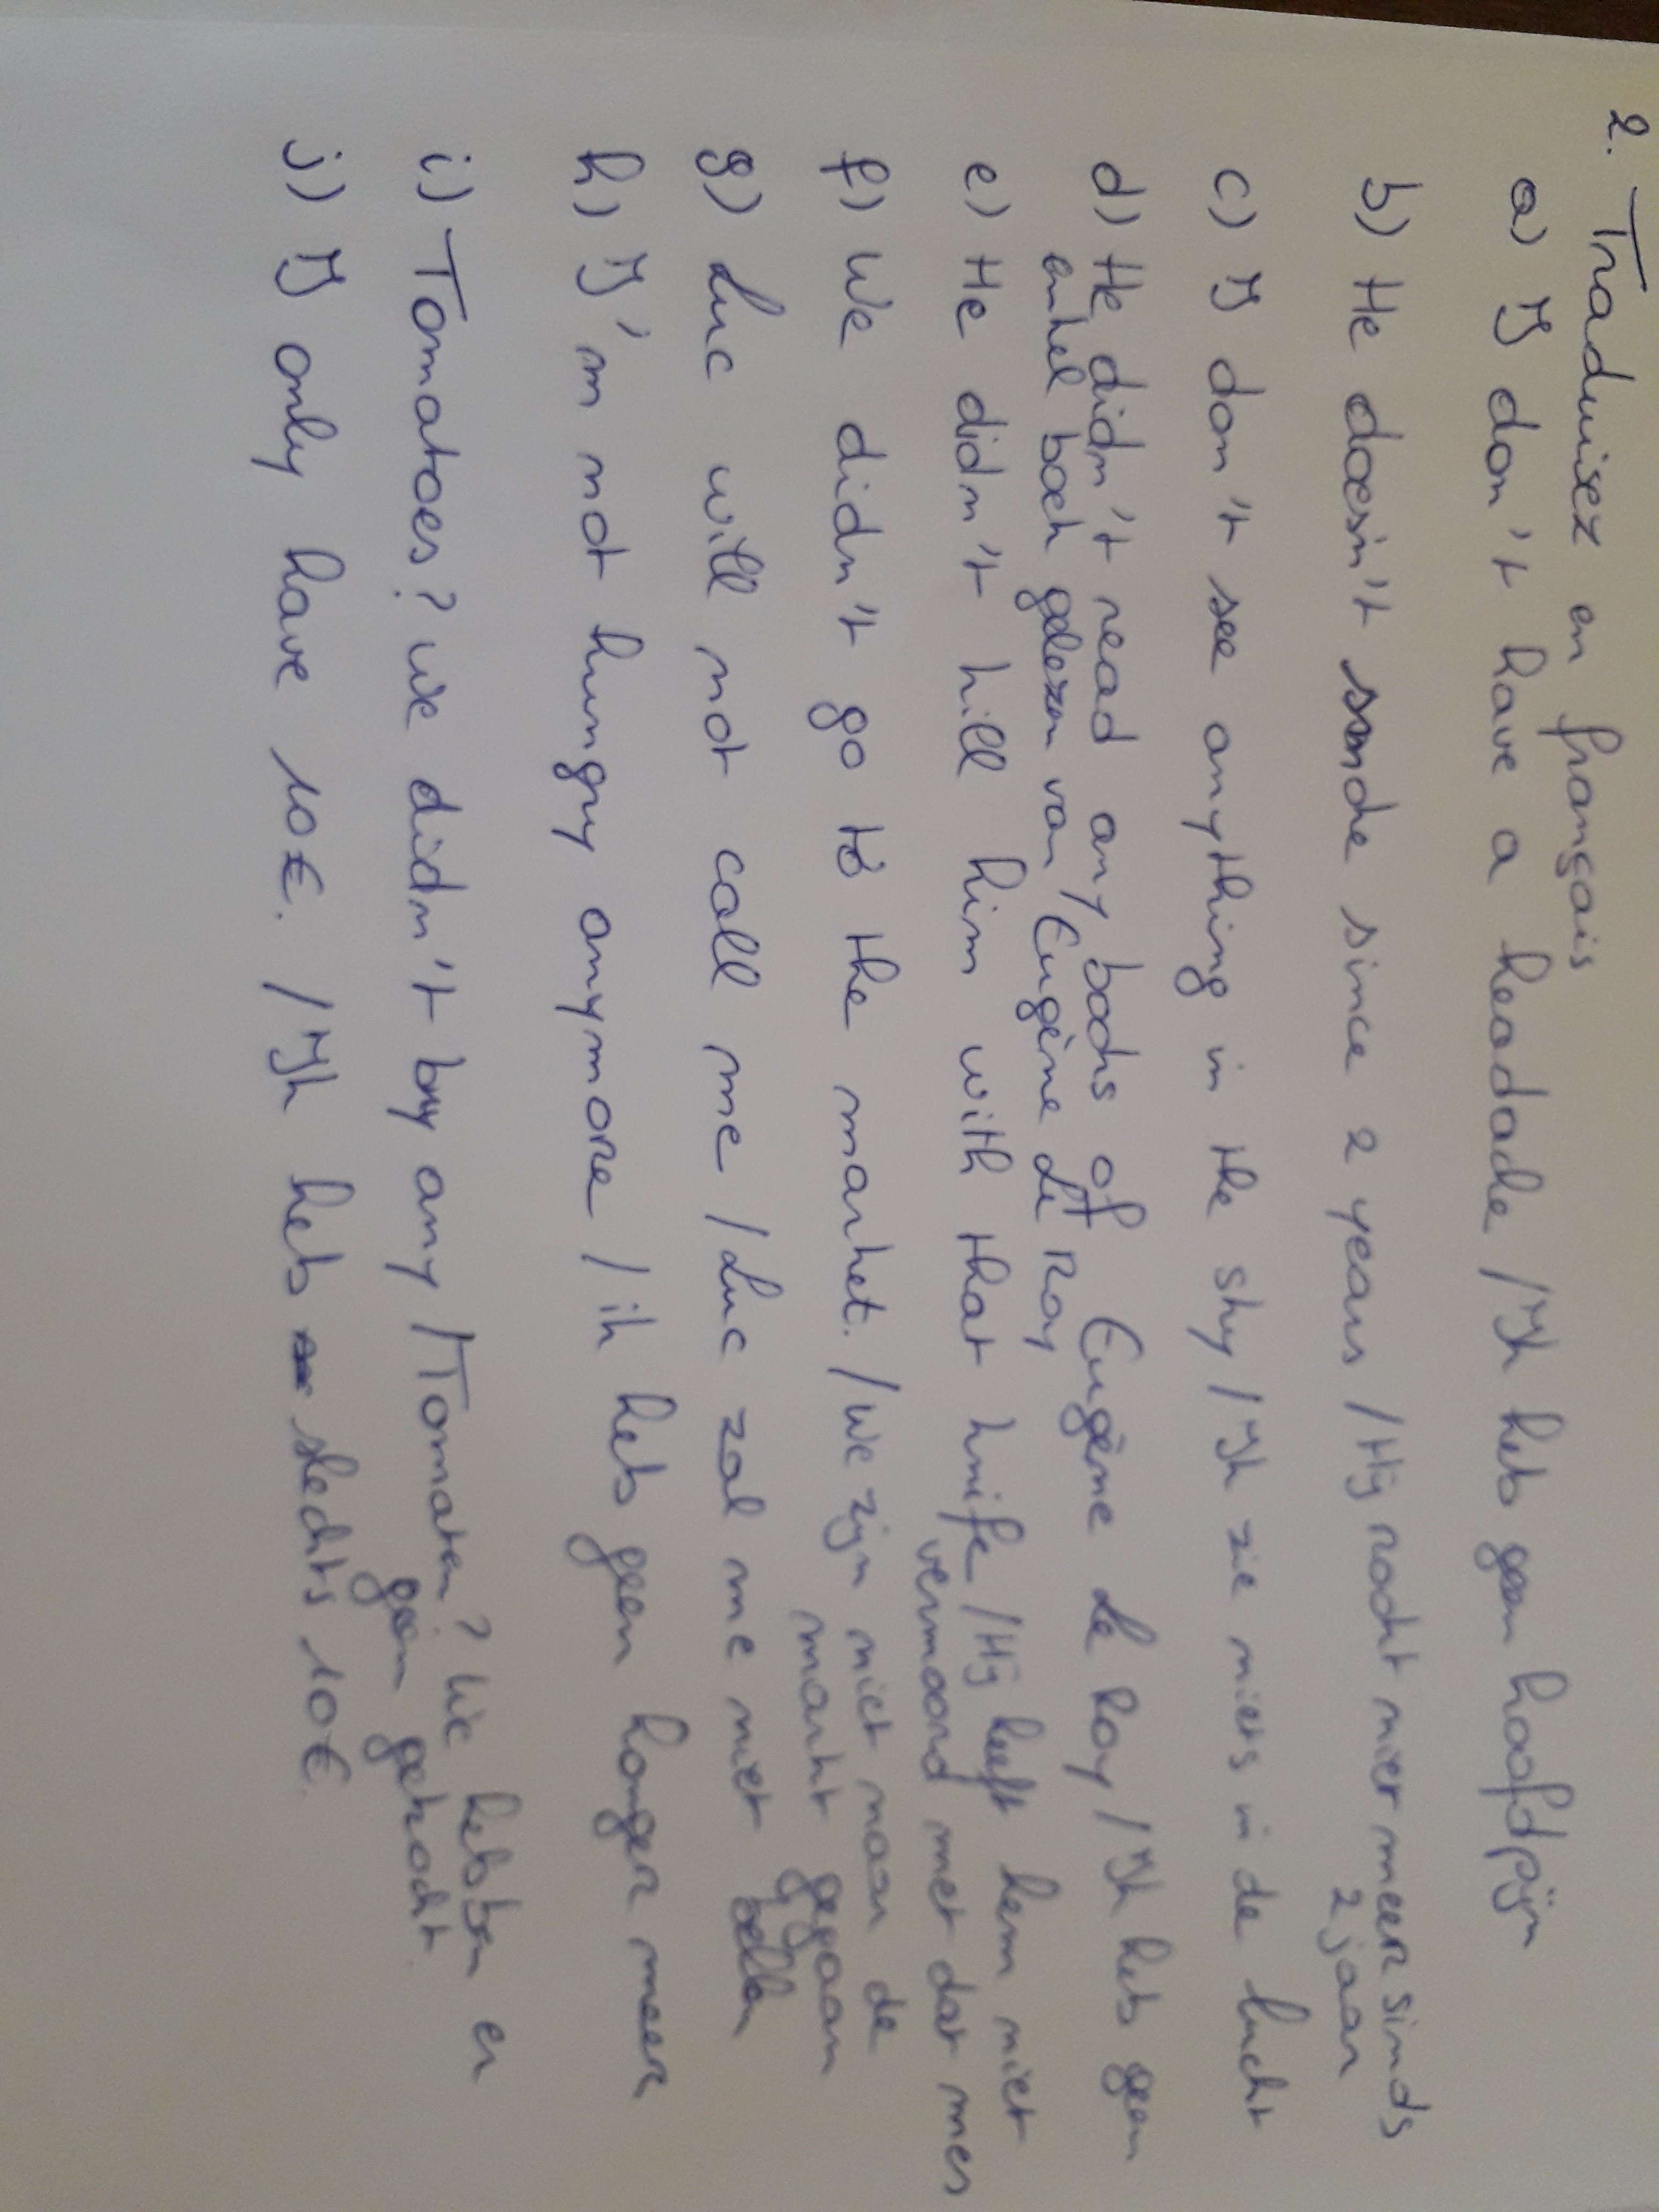 2. Traduisez en français
a) I don't have a headache / Ik heb geen hoofdpijn
b) He doesn't smoke since 2 years / Hij rookt niet meer sinds
2 jaar
c) I don't see anything in the sky / Ik zie niets in de lucht
d) He didn't read any books of Eugène Le Roy / Ik heb geen
enkel boek gelezen van Eugène Le Roy
e) He didn't kill him with that knife / Hij heeft hem niet
vermoord met dat mes
f) We didn't go to the market. / We zijn niet naar de
markt gegaan
g) Luc will not call me / Luc zal me niet bellen
h) I'm not hungry anymore / ik heb geen honger meer
i) Tomatoes? We didn't buy any / Tomaten? We hebben er
geen gekocht
j) I only have 10€. / Ik heb slechts 10€.